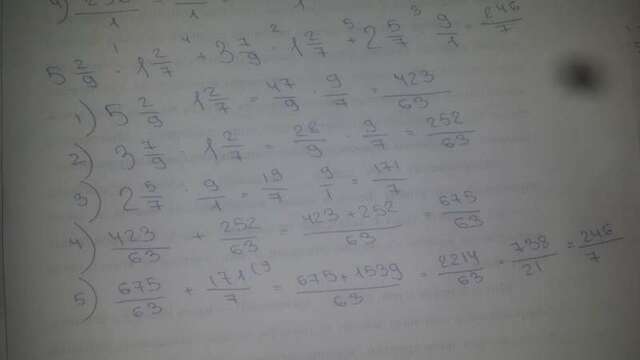 5 2/9 · 1 2/7 + 3 7/9 · 1 2/7 + 2 5/7 · 9/1 = 246/7
1) 5 2/9 · 1 2/7 = 47/9 · 9/7 = 423/63
2) 3 7/9 · 1 2/7 = 28/9 · 9/7 = 252/63
3) 2 5/7 · 9/1 = 19/7 · 9/1 = 171/7
4) 423/63 + 252/63 = 423+252/63 = 675/63
5) 675/63 + 171(9/7 = 675+1539/63 = 2214/63 = 738/21 = 246/7